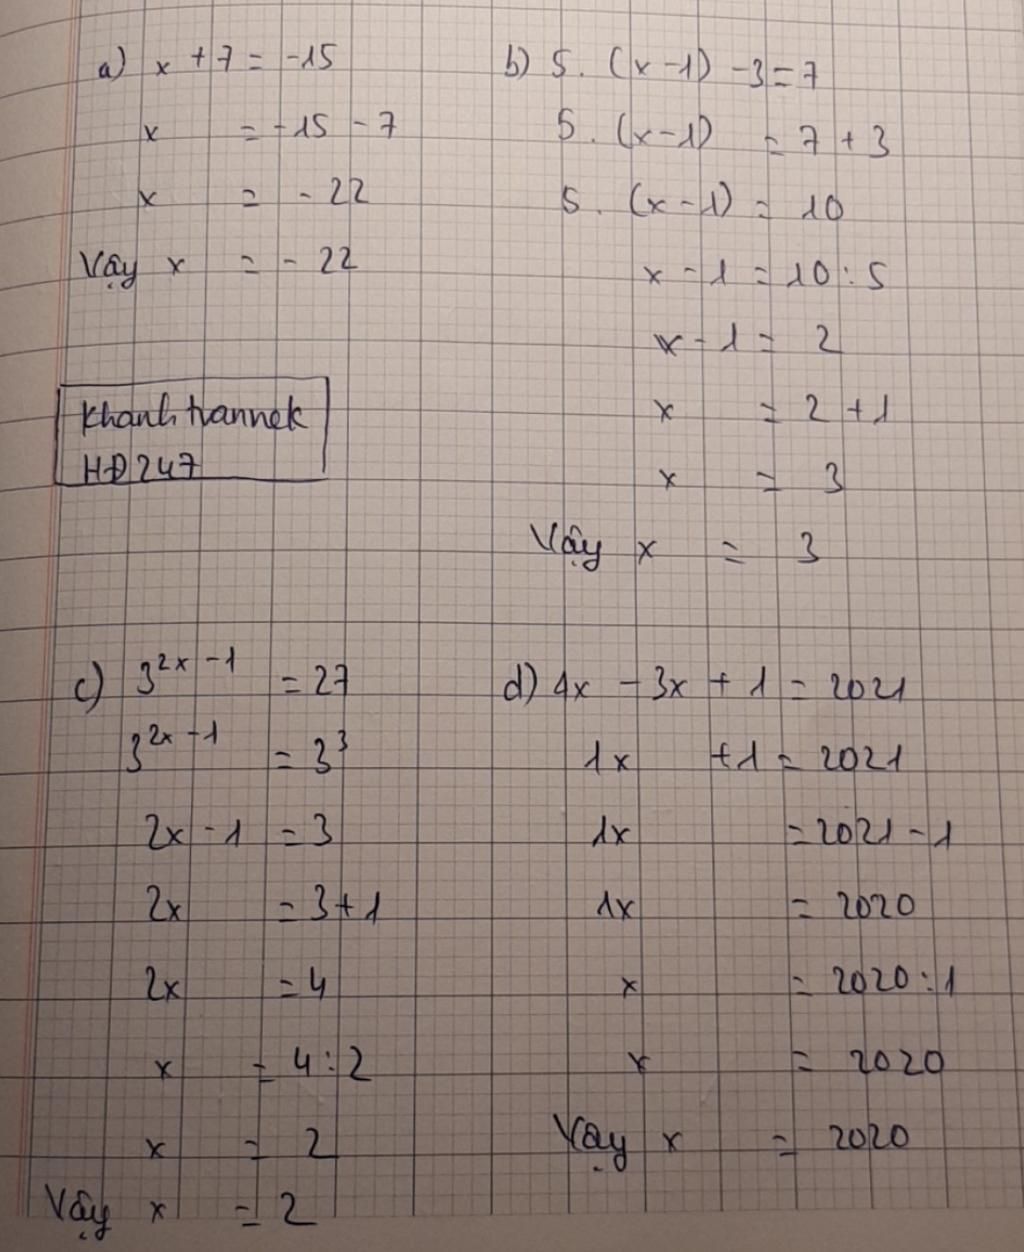 a) x + 7 = -15
x = -15 - 7
x = - 22
Vậy x = - 22
Khanh trannek
HĐ247
b) 5. (x - 1) - 3 = 7
5. (x - 1) = 7 + 3
5. (x - 1) = 10
x - 1 = 10 : 5
x - 1 = 2
x = 2 + 1
x = 3
Vậy x = 3
c) 3^{2x - 1} = 27
3^{2x - 1} = 3^3
2x - 1 = 3
2x = 3 + 1
2x = 4
x = 4 : 2
x = 2
Vậy x = 2
d) 4x - 3x + 1 = 2021
1x + 1 = 2021
1x = 2021 - 1
1x = 2020
x = 2020 : 1
x = 2020
Vậy x = 2020